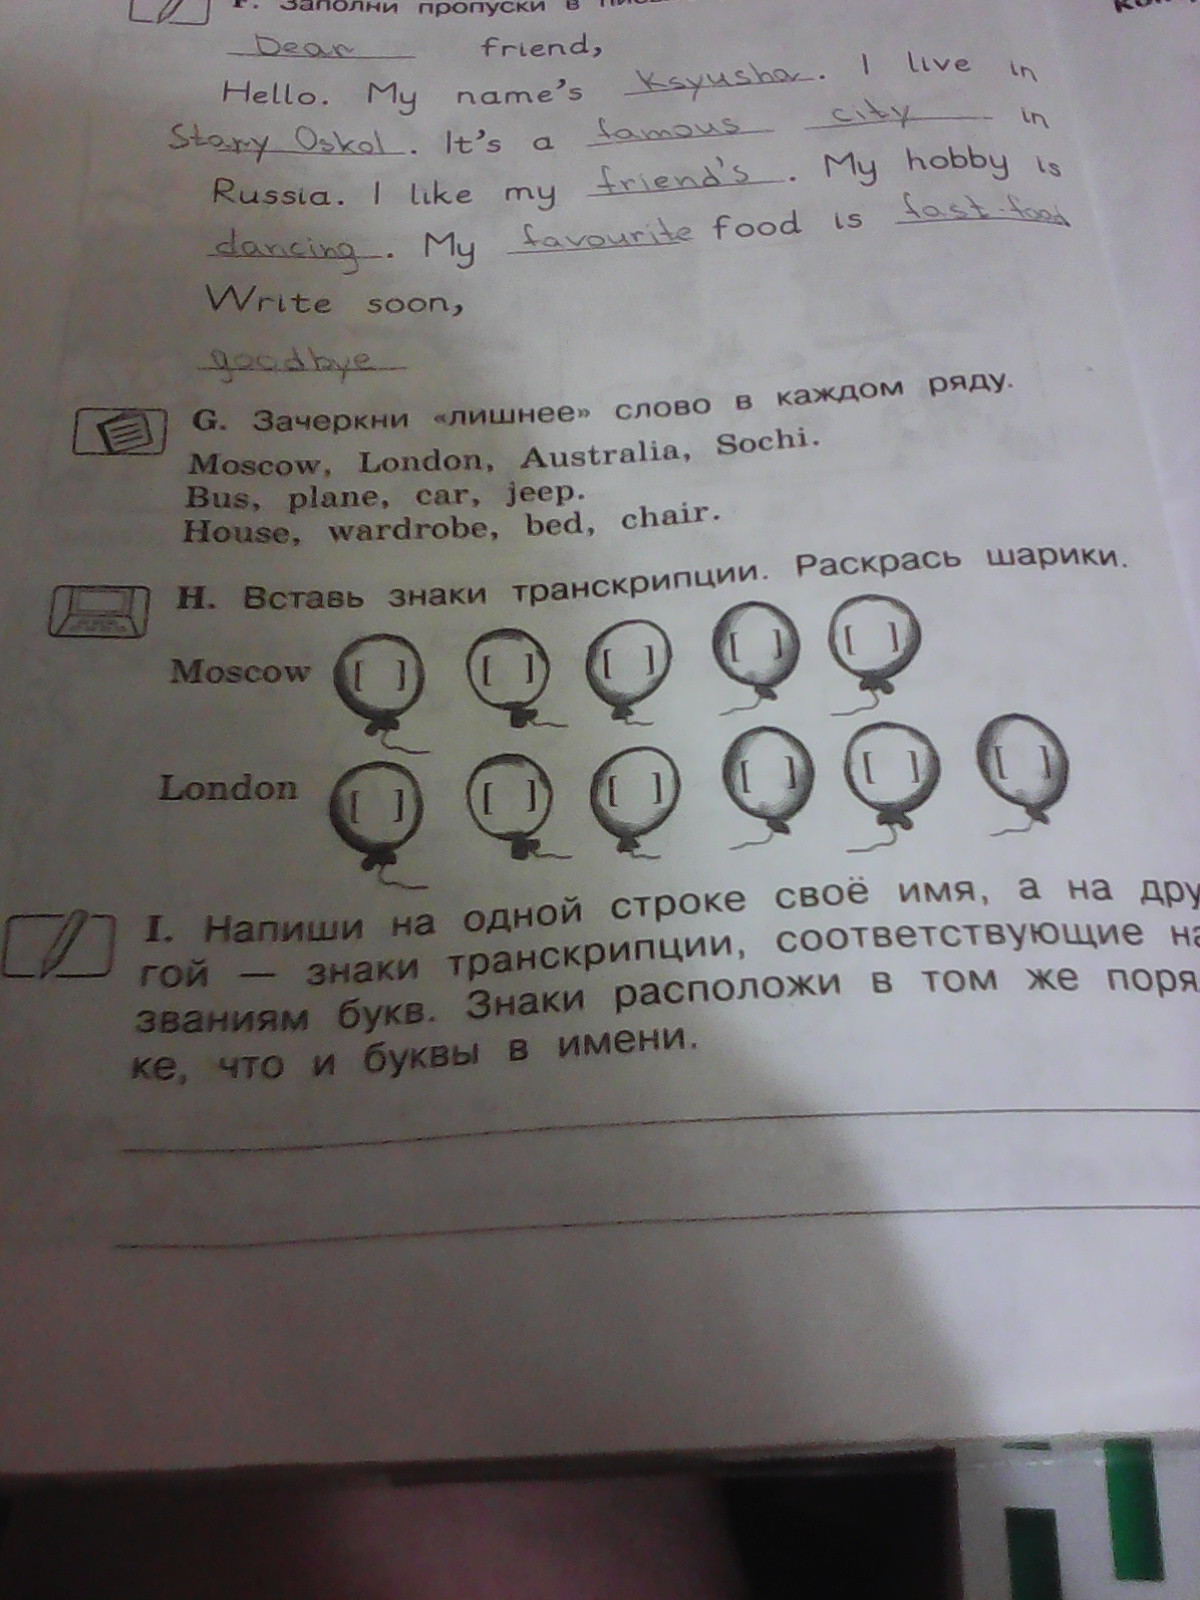 F. Заполни пропуски в
Dear friend,
Hello. My name's Ksyusha. I live in
Stary Oskol. It's a famous city in
Russia. I like my friend's. My hobby is
dancing. My favourite food is fast food
Write soon,
goodbye
G. Зачеркни «лишнее» слово в каждом ряду.
Moscow, London, Australia, Sochi.
Bus, plane, car, jeep.
House, wardrobe, bed, chair.
H. Вставь знаки транскрипции. Раскрась шарики.
Moscow [ ] [ ] [ ] [ ] [ ]
London [ ] [ ] [ ] [ ] [ ] [ ]
I. Напиши на одной строке своё имя, а на дру
гой — знаки транскрипции, соответствующие на
званиям букв. Знаки расположи в том же поря
ке, что и буквы в имени.